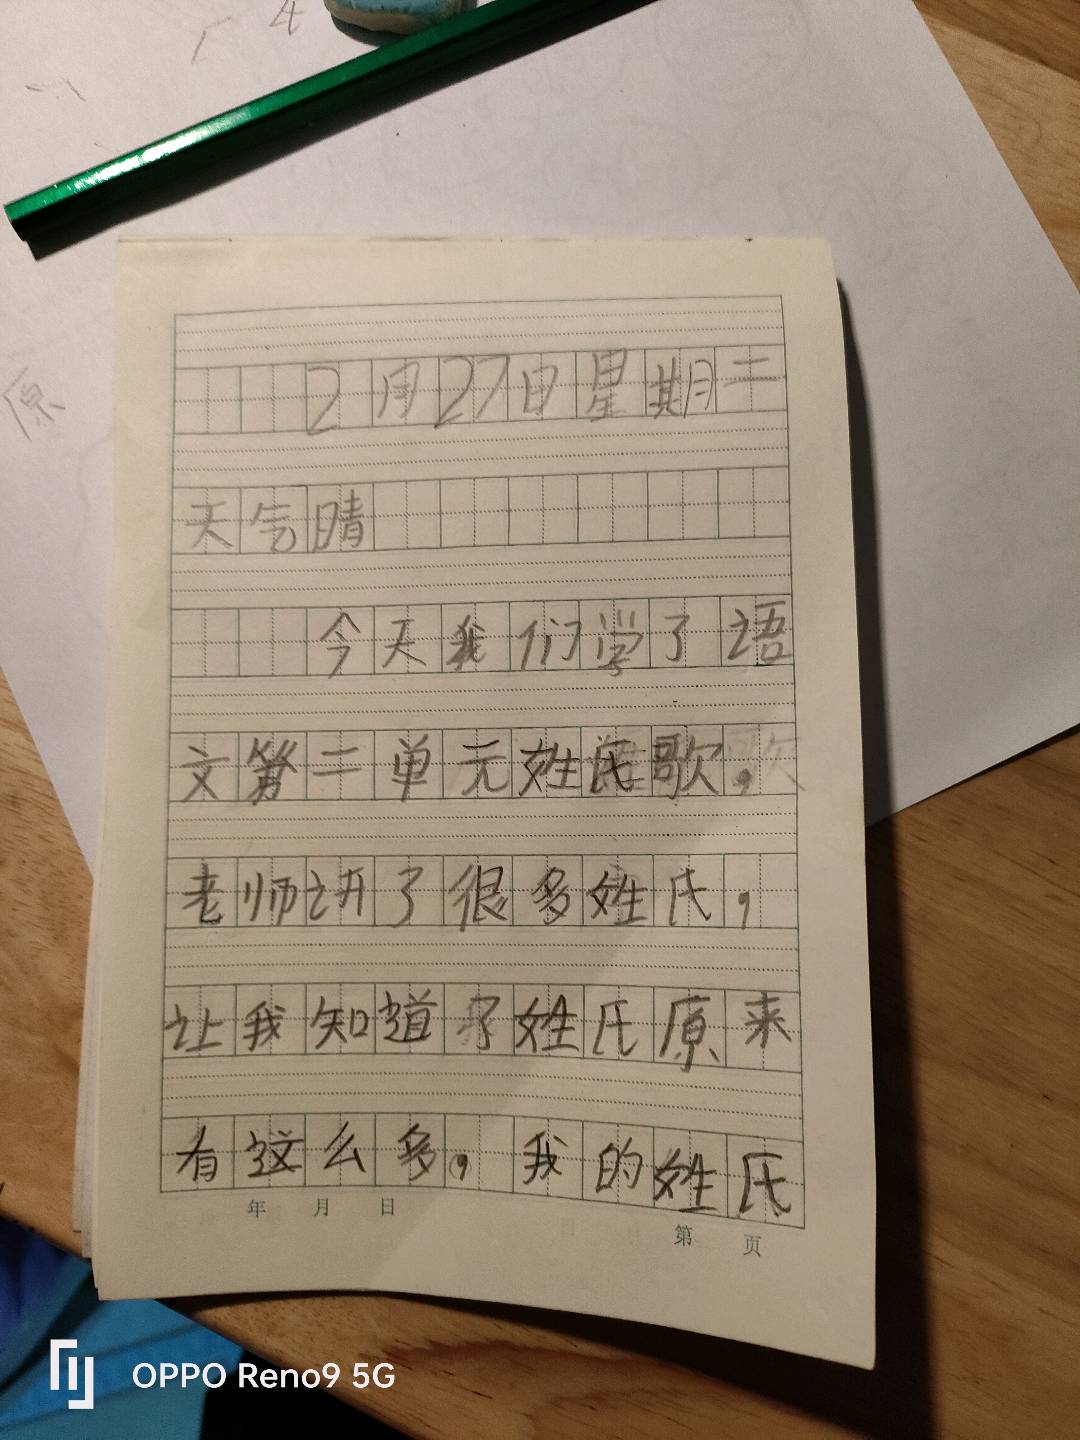 4
原
2月27日星期二
天气晴
今天我们学了语
文第二单元姓氏歌，
老师讲了很多姓氏，
让我知道了姓氏原来
有这么多，我的姓氏
年 月 日
第 页
OPPO Reno9 5G